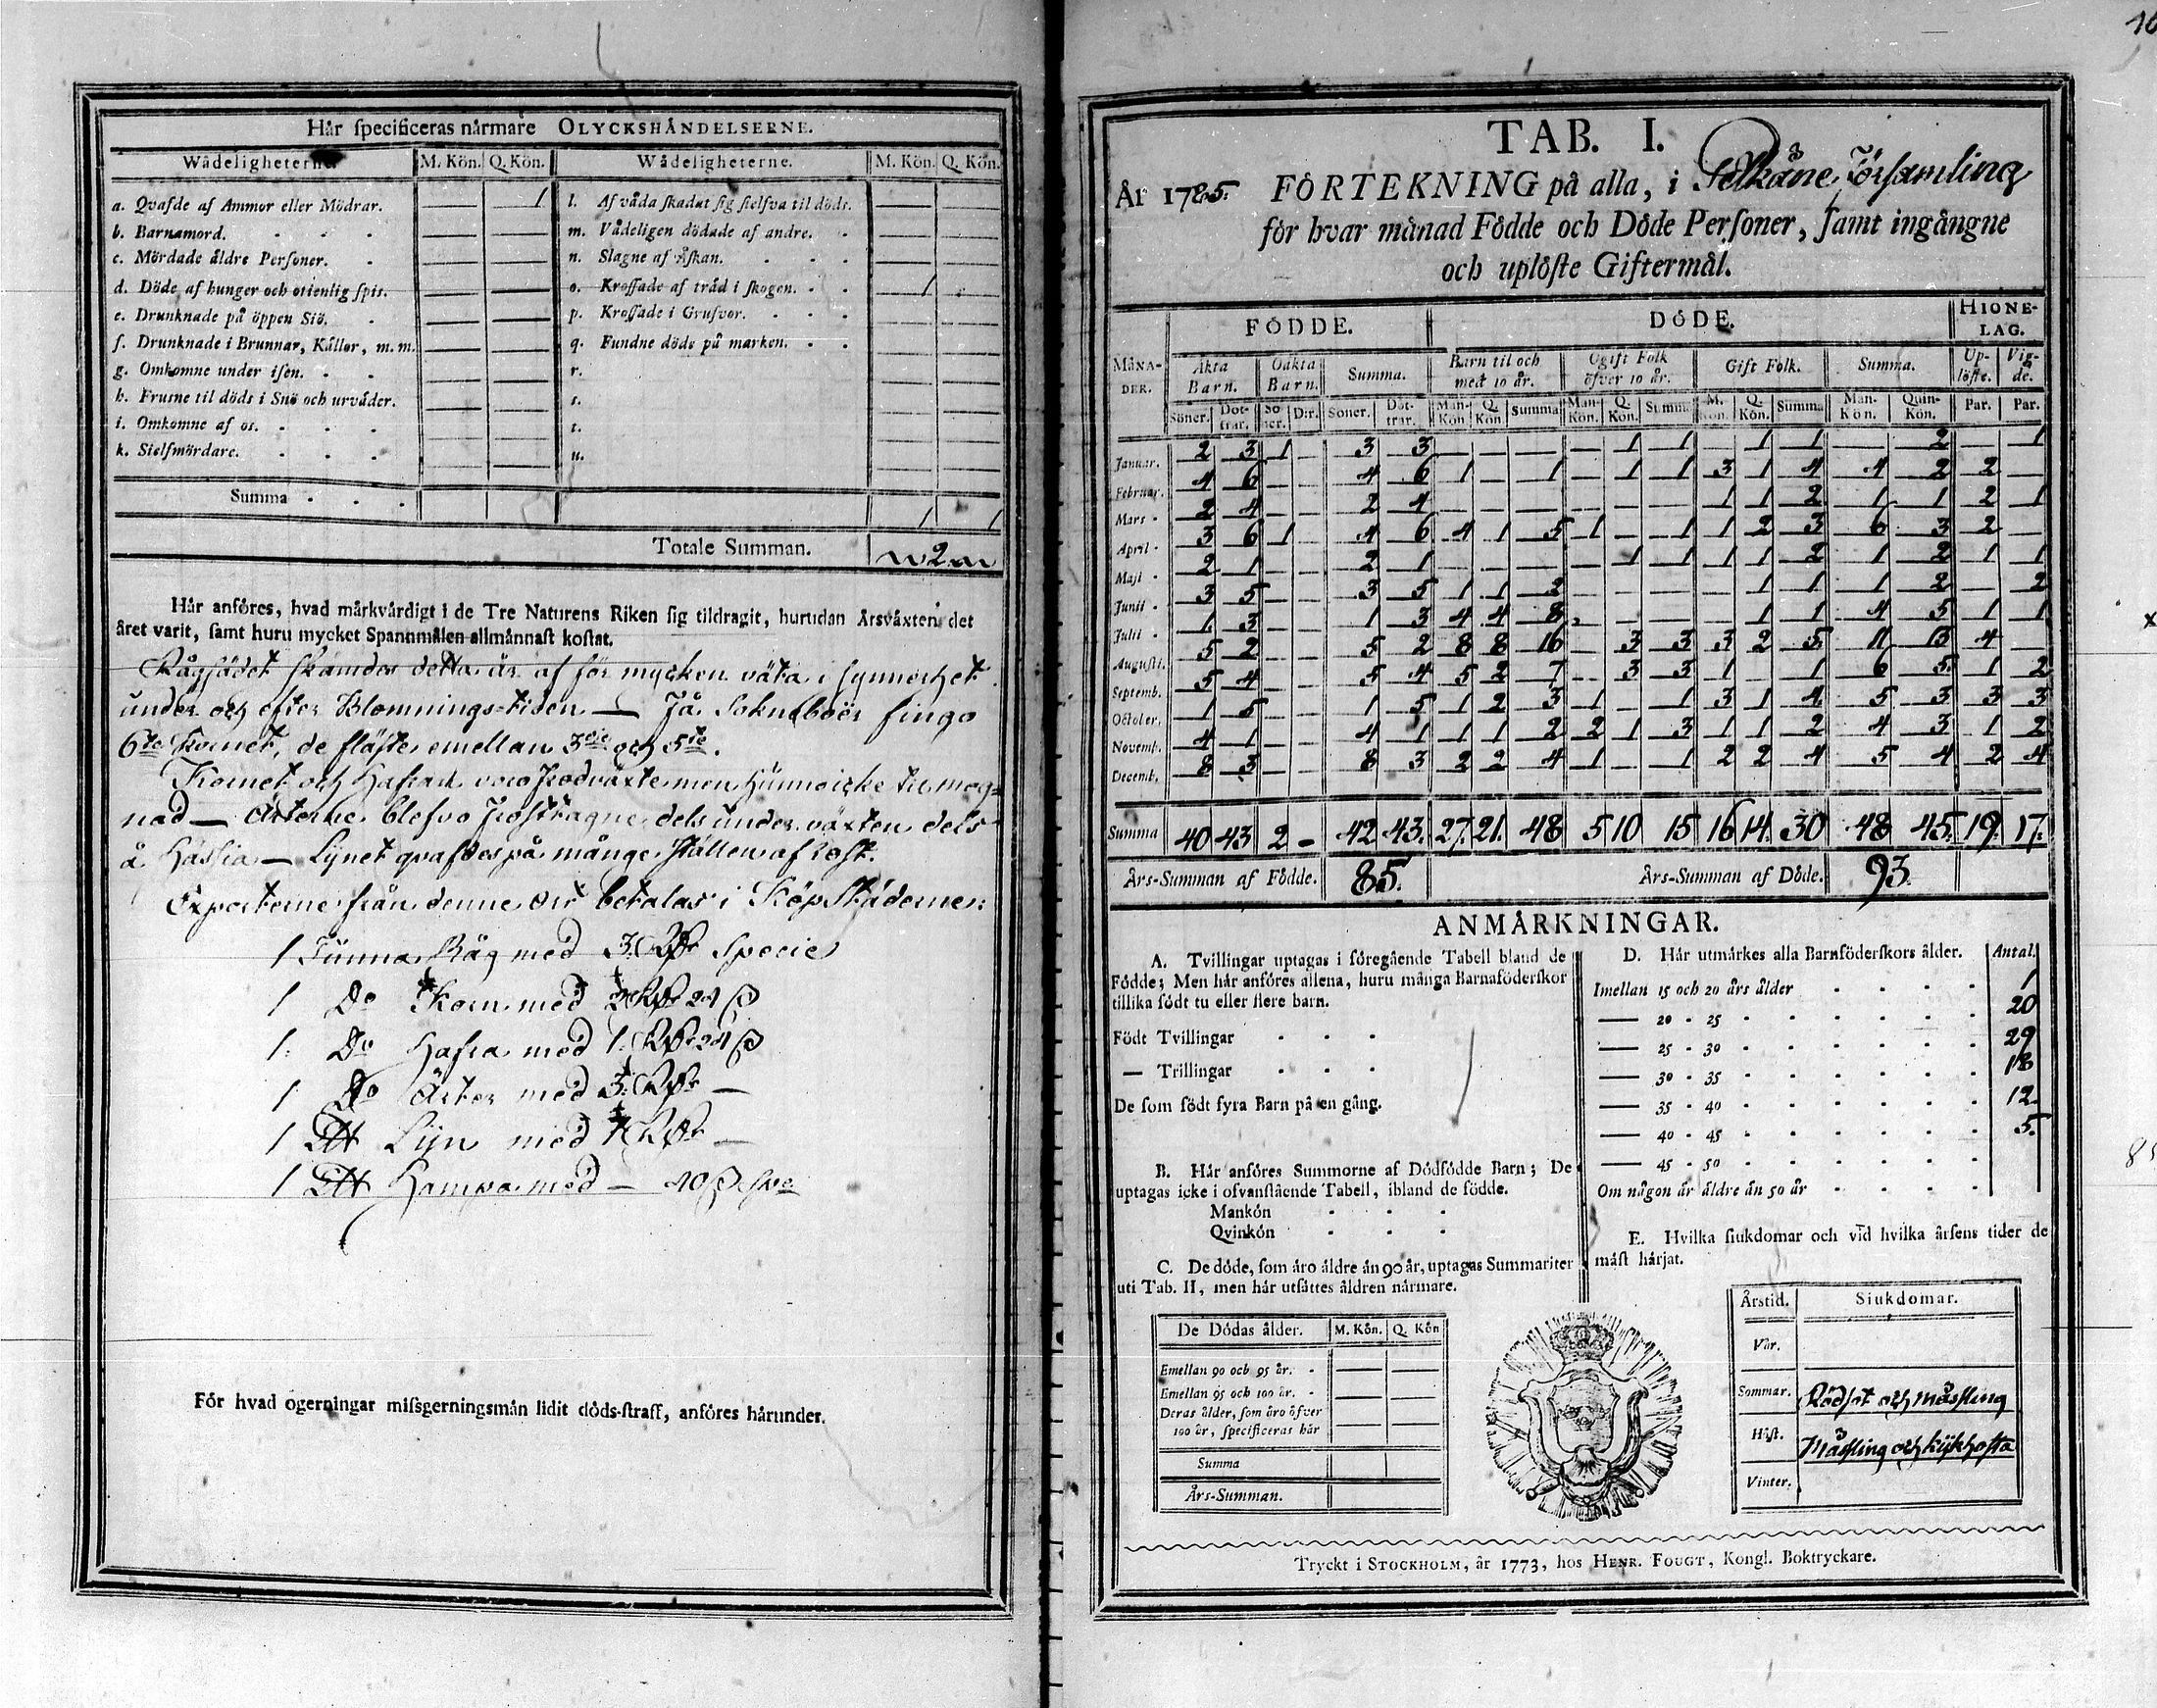 Hår specificeras nårmare OLYCKSHÅNDELSERNE.
Wådeligheterne. M. Kön. Q. Kön. Wådeligheterne. M. Kön. Q. Kön.
a. Qvafde af Ammor eller Mödrar. — 1 l. Af våda skadat sig sielfva til döds. — —
b. Barnamord. — — m. Vådeligen dödade af andre. — —
c. Mördade åldre Personer. — — n. Slagne af Åskan. — —
d. Döde af hunger och otienlig spis. — — o. Krossade af tråd i skogen. 1
e. Drunknade på öppen Siö. — — p. Krossade i Grufvor. — —
f. Drunknade i Brunnar, Kållor, m. m. — — q. Fundne döde på marken. — —
g. Omkomne under isen. — — r. — —
h. Frusne til döds i Snö och urvåder. — — s. — —
i. Omkomne af os. — — t. — —
k. Sielfmördare. — — u. — —
Summa 1 1
Totale Summan. 2
Hår anföres, hvad mårkvårdigt i de Tre Naturens Riken sig tildragit, hurudan Årsvåxten det
året varit, samt huru mycket Spannmålen allmånnast kostat.
Rågsädet skämdes detta år af för mycken väta i synnerhet
under och efter Blomnings-tiden — Få Sokneboer fingo
6te Kornet, de fläste emellan 3die och 5te.
Kornet och Hafran voro frodväxte men hunno icke til mog=
nad — Ärterne blefvo frosttagne dels under växten dels
å Hässia — Lijnet qvafdes på många ställen af rost.
Exporterne från denne ort betalas i Köpstäderne:
1 Tunna Råg med 3 Rdr Specie
1 Do Korn med 2 Rdr 24 ß
1 Do Hafra med 1 Rdr 24 ß
1 Do Ärter med 3 Rdr —
1 Lijn med 1 Rdr —
1 Hampa med — 40 ß spe
För hvad ogerningar missgerningsmån lidit döds-straff, anföres hårunder.
TAB. I.
År 1785. FÖRTEKNING på alla, i Pelkåne Församling
för hvar månad Födde och Döde Personer, samt ingångne
och uplöste Giftermål.
FÖDDE. DÖDE. HIONE-LAG.
MÅNADER. Åkta Barn. Oåkta Barn. Summa. Barn til och med 10 år. Ogift Folk öfver 10 år. Gift Folk. Summa. Uplöste. Vigde.
Söner. Döttrar. Söner. Dtr. Söner. Döttrar. Man-Kön. Q. Kön. Summa Man-Kön. Q. Kön. Summa M. Kön. Q. Kön. Summa Man-Kön. Quin-Kön. Par. Par.
Januar. 2 3 1 — 3 3 — — — — 1 1 — 1 1 — 2 — 1
Februar. 4 6 — — 4 6 1 — 1 — 1 1 3 1 4 4 2 2 —
Mars 2 4 — — 2 4 — — — — — — 1 1 2 1 1 2 1
April 3 6 1 — 4 6 4 1 5 1 — 1 1 2 3 6 3 2 —
Maji 2 1 — — 2 1 — — — — 1 1 1 1 2 1 2 1 1
Junii 3 5 — — 3 5 1 1 2 — — — — 1 1 1 2 — 2
Julii 1 3 — — 1 3 4 4 8 — — — — 1 1 4 5 1 1
Augusti. 5 2 — — 5 2 8 8 16 — 3 3 3 2 5 11 13 4 —
Septemb. 5 4 — — 5 4 5 2 7 — 3 3 1 — 1 6 5 1 2
October. 1 5 — — 1 5 1 2 3 1 — 1 3 1 4 5 3 3 3
Novemb. 4 1 — — 4 1 1 1 2 2 1 3 1 1 2 4 3 1 2
Decemb. 8 3 — — 8 3 2 2 4 1 — 1 2 2 4 5 4 2 4
Summa 40 43 2 — 42 43. 27. 21. 48 5 10 15 16 14. 30 48 45. 19. 17.
Års-Summan af Födde. 85. Års-Summan af Döde. 93.
ANMÅRKNINGAR.
A. Tvillingar uptagas i föregående Tabell bland de
Födde; Men hår anföres allena, huru många Barnaföderskor
tillika födt tu eller flere barn.
Födt Tvillingar
— Trillingar
De som födt fyra Barn på en gång.
B. Hår anföres Summorne af Dödfödde Barn; De
uptagas icke i ofvanstående Tabell, ibland de födde.
Mankön
Qvinkön
C. De döde, som åro åldre ån 90 år, uptagas Summariter
uti Tab. II, men hår utsåttes åldren nårmare.
De Dödas ålder. M. Kön. Q. Kön
Emellan 90 och 95 år. — —
Emellan 95 och 100 år. — —
Deras ålder, som åro öfver — —
100 år, specificeras hår — —
Summa
Års-Summan.
D. Hår utmårkes alla Barnföderskors ålder. Antal.
Imellan 15 och 20 års ålder 1
— 20 - 25 20
— 25 - 30 29
— 30 - 35 18
— 35 - 40 12
— 40 - 45 5.
— 45 - 50
Om någon år åldre ån 50 år
E. Hvilka siukdomar och vid hvilka årsens tider de
måst hårjat.
Årstid. Siukdomar.
Vår.
Sommar. Rödsot och Mässling
Höst. Mässling och kijkhosta
Vinter.
Tryckt i STOCKHOLM, år 1773, hos HENR. FOUGT, Kongl. Boktryckare.